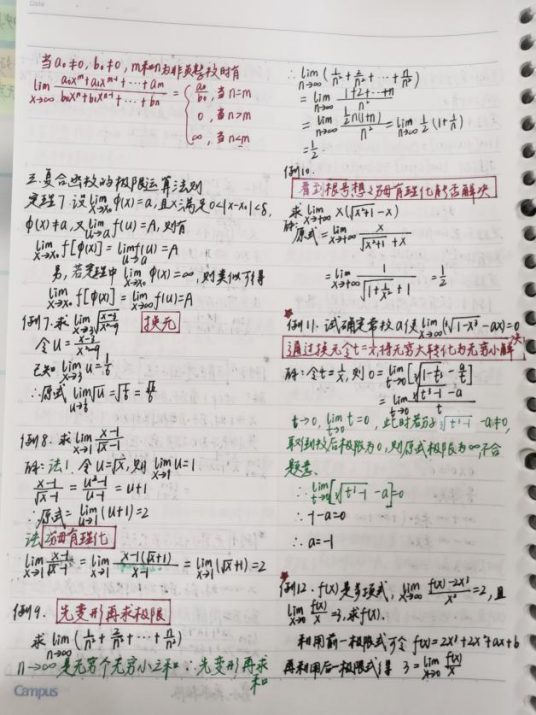 当a₀≠0, b₀≠0, m和n为非负整数时有
lim x→∞ (a₀xᵐ+a₁xᵐ⁻¹+…+aₘ)/(b₀xⁿ+b₁xⁿ⁻¹+…+bₙ) = { a₀/b₀, 当n=m
0, 当n>m
∞, 当n<m
三.复合函数的极限运算法则
定理7.设lim x→x₀ φ(x)=a, 且x满足0<|x-x₀|<δ,
φ(x)≠a, 又lim u→a f(u)=A, 则有
lim x→x₀ f[φ(x)]=lim u→a f(u)=A
另, 若定理中lim x→x₀ φ(x)=∞, 则类似可得
lim x→x₀ f[φ(x)]=lim u→∞ f(u)=A
例7.求lim x→3 √((x-3)/(x²-9)) 换元
令u=(x-3)/(x²-9)
已知lim x→3 u=1/6
∴原式=lim u→1/6 √u=√(1/6)=√6/6
例8. 求lim x→1 (x-1)/(√x-1)
解:法1. 令u=√x, 则lim x→1 u=1
(x-1)/(√x-1)=(u²-1)/(u-1)=u+1
∴原式=lim u→1 (u+1)=2
法2 分母有理化
lim x→1 (x-1)/(√x-1)=lim x→1 (x-1)(√x+1)/(x-1)=lim x→1 (√x+1)=2
例9. 先变形再求极限
求lim n→∞ (1/n²+2/n²+…+n/n²)
n→∞ 是无穷个无穷小之和∴先变形再求
和
Campus
∴lim n→∞ (1/n²+2/n²+…+n/n²)
=lim n→∞ (1+2+…+n)/n²
=lim n→∞ (½n(n+1))/n²=lim n→∞ ½(1+1/n)
=1/2
例10.
看到根号想分母有理化能否解决
求lim x→+∞ x(√(x²+1)-x)
解:原式=lim x→+∞ x/(√(x²+1)+x)
=lim x→+∞ 1/(√(1+1/x²)+1)=1/2
例11. 试确定常数a使lim x→∞ (∛(1-x³)-ax)=0
通过换元令t=1/x,将无穷大转化为无穷小解决
解:令t=1/x, 则0=lim t→0 [∛(1-1/t³)-a/t]
=lim t→0 (∛(t³-1)-a)/t
t→0, lim t→0 t=0, 此时若分子∛(t³-1)-a≠0,
则极限为∞不合
题意.
∴lim t→0 [∛(t³-1)-a]=0
∴-1-a=0
∴a=-1
例12.f(x)是多项式, lim x→∞ (f(x)-2x³)/x²=2, 且
lim x→0 f(x)/x=3,求f(x).
利用前一极限式可令f(x)=2x³+2x²+ax+b
再利用后一极限式得 3=lim x→0 f(x)/x